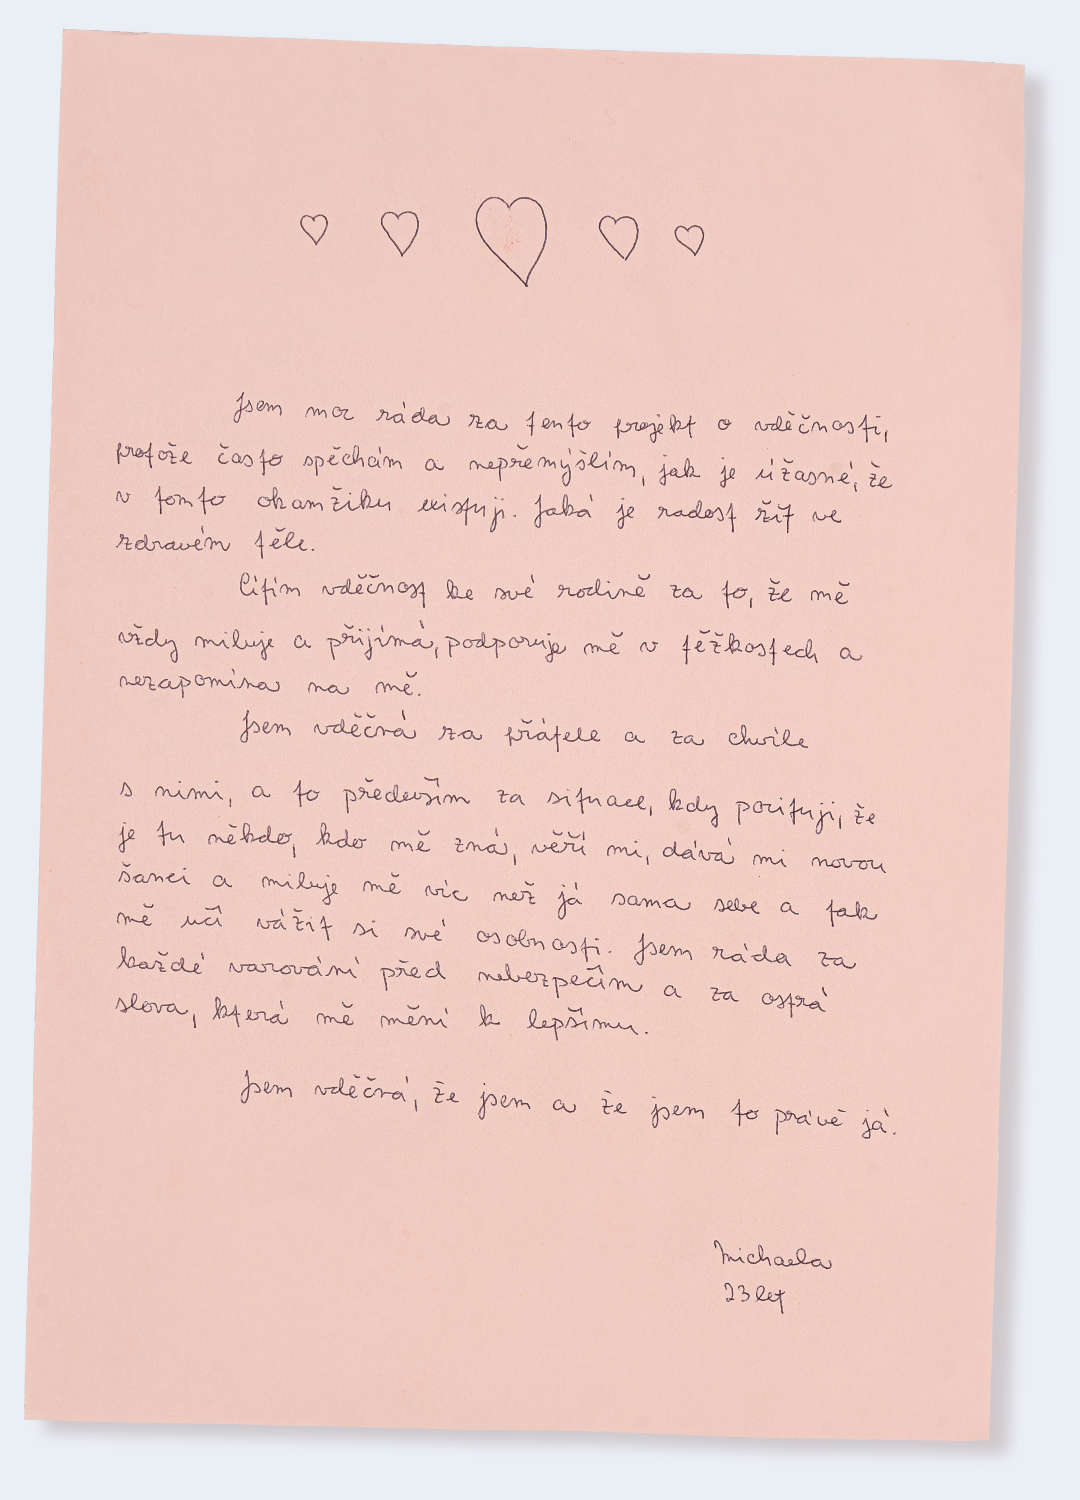 Jsem moc ráda za tento projekt o vděčnosti,
protože často spěchám a nepřemýšlím, jak je úžasné, že
v tomto okamžiku existuji. Jaká je radost žít ve
zdravém těle.
Cítím vděčnost ke své rodině za to, že mě
vždy miluje a přijímá, podporuje mě v těžkostech a
nezapomíná na mě.
Jsem vděčná za přátele a za chvíle
s nimi, a to především za situace, kdy pociťuji, že
je tu někdo, kdo mě zná, věří mi, dává mi novou
šanci a miluje mě víc než já sama sebe a tak
mě učí vážit si své osobnosti. Jsem ráda za
každé varování před nebezpečím a za ostrá
slova, která mě mění k lepšímu.
Jsem vděčná, že jsem a že jsem to právě já.
Michaela
23 let